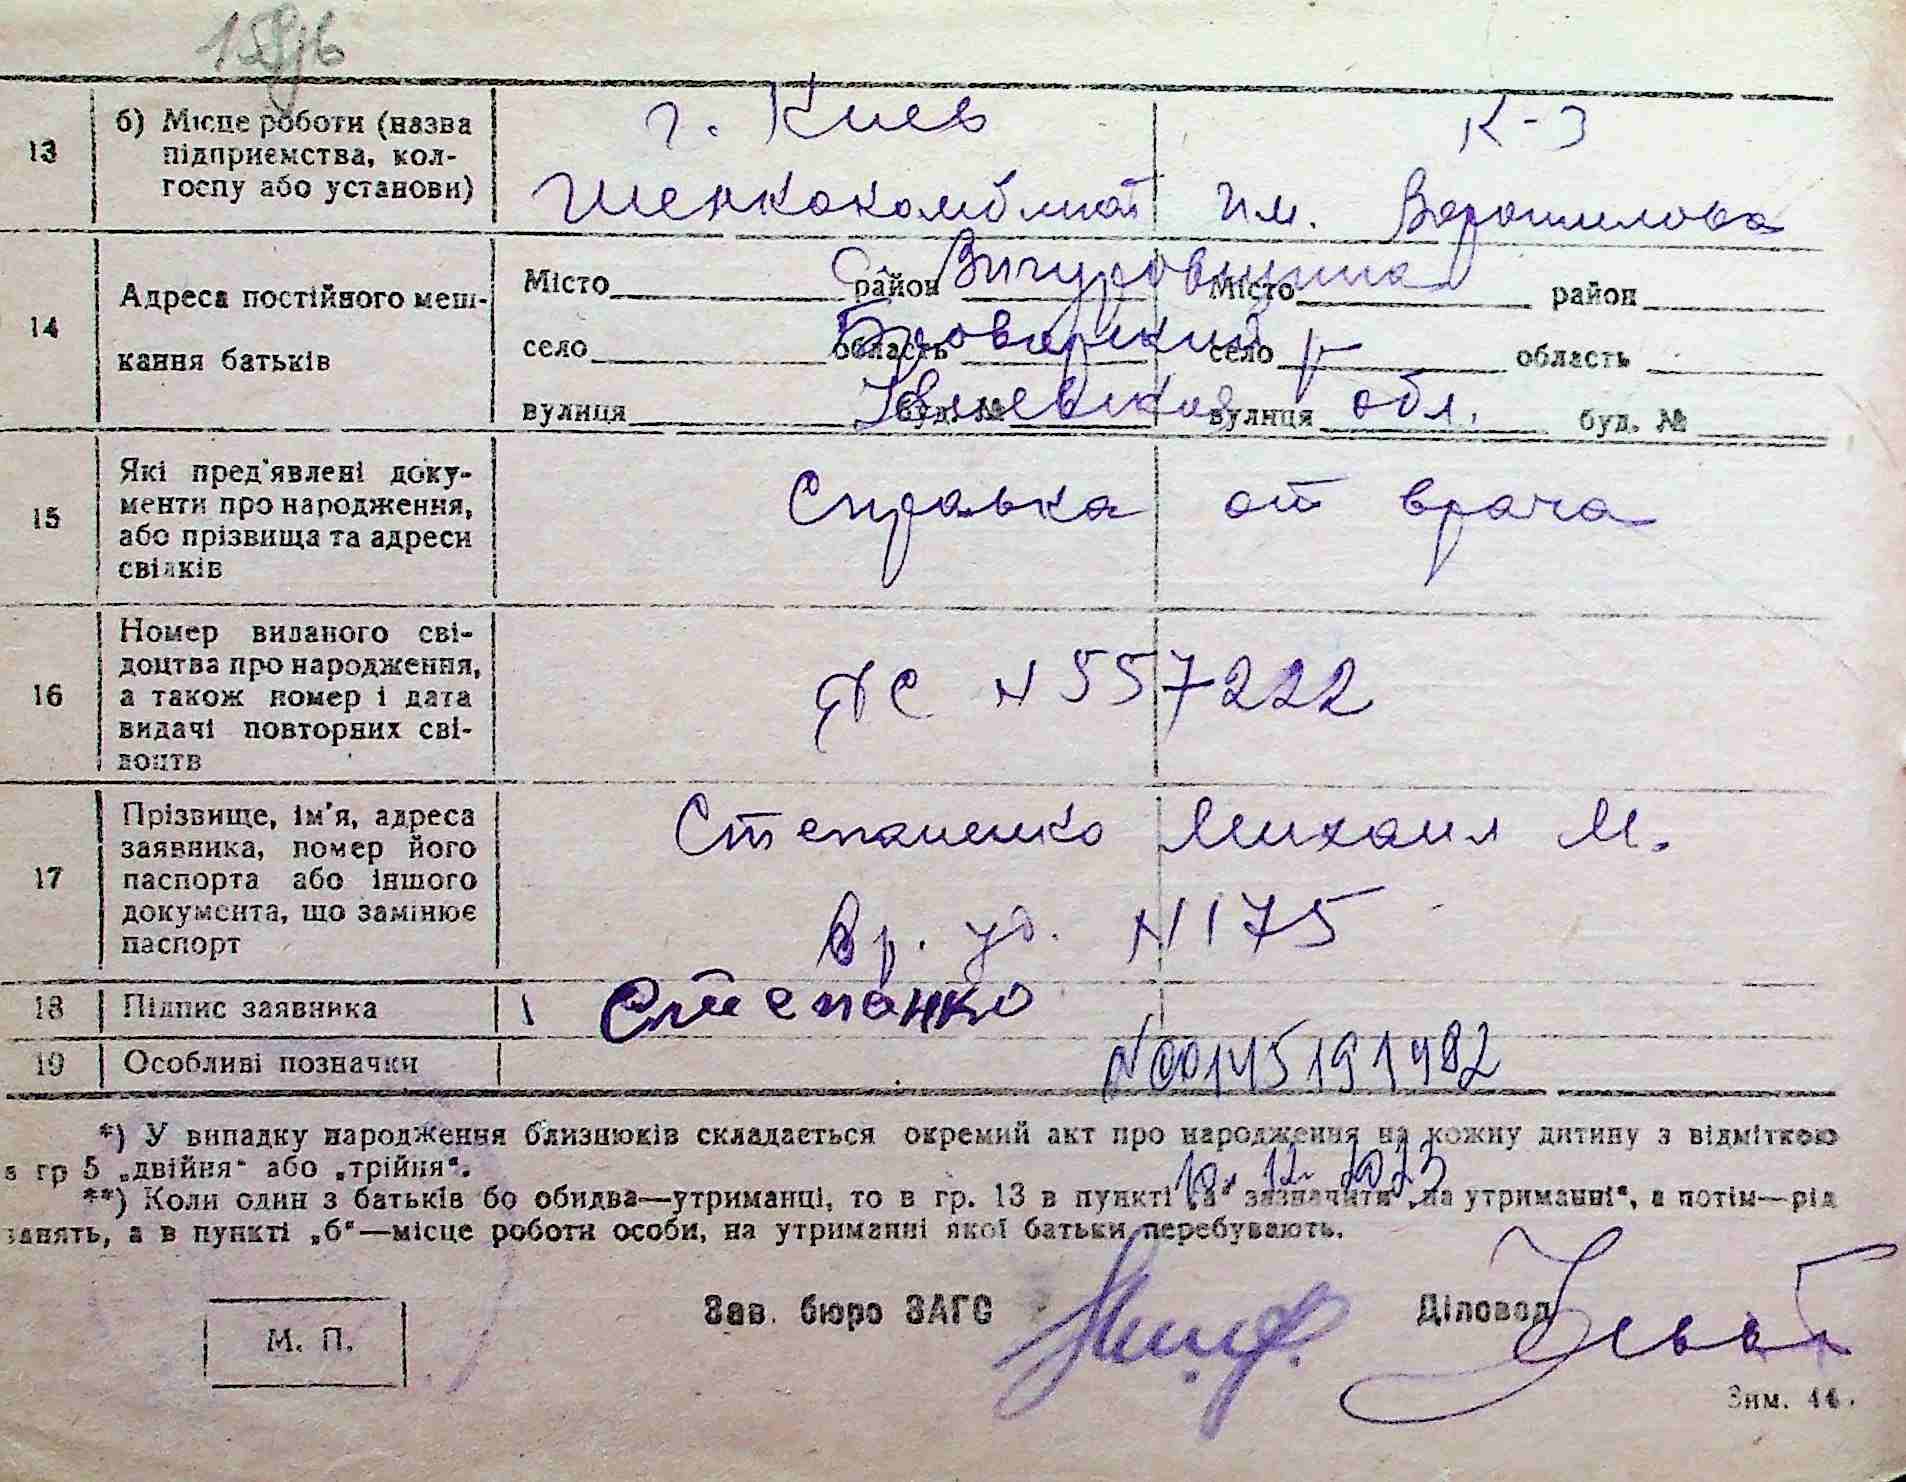 13 б) Місце роботи (назва підприємства, колгоспу або установи)
г. Киев К-з
Шелкокомбинат им. Ворошилова
14 Адреса постійного мешкання батьків
Місто район Місто район
село область село область
вулиця буд. № вулиця буд. №
с. Вигуровщина
Броварский р
Киевской обл.
15 Які пред'явлені документи про народження, або прізвища та адреси свідків
Справка от врача
16 Номер виданого свідоцтва про народження, а також номер і дата видачі повторних свідоцтв
ЯС N 557222
17 Прізвище, ім'я, адреса заявника, номер його паспорта або іншого документа, що замінює паспорт
Степаненко Михаил М.
Вр. уд. N 175
18 Підпис заявника
Степанко
19 Особливі позначки
N00145191982
*) У випадку народження близнюків складається окремий акт про народження на кожну дитину з відміткою
в гр 5 „двійня“ або „трійня“.
18. 12. 2023
**) Коли один з батьків бо обидва—утриманці, то в гр. 13 в пункті „а“ зазначити „на утриманні“, а потім—рід
занять, а в пункті „б“—місце роботи особи, на утриманні якої батьки перебувають.
М. П.
Зав. бюро ЗАГС Діловод
Зим. 44.